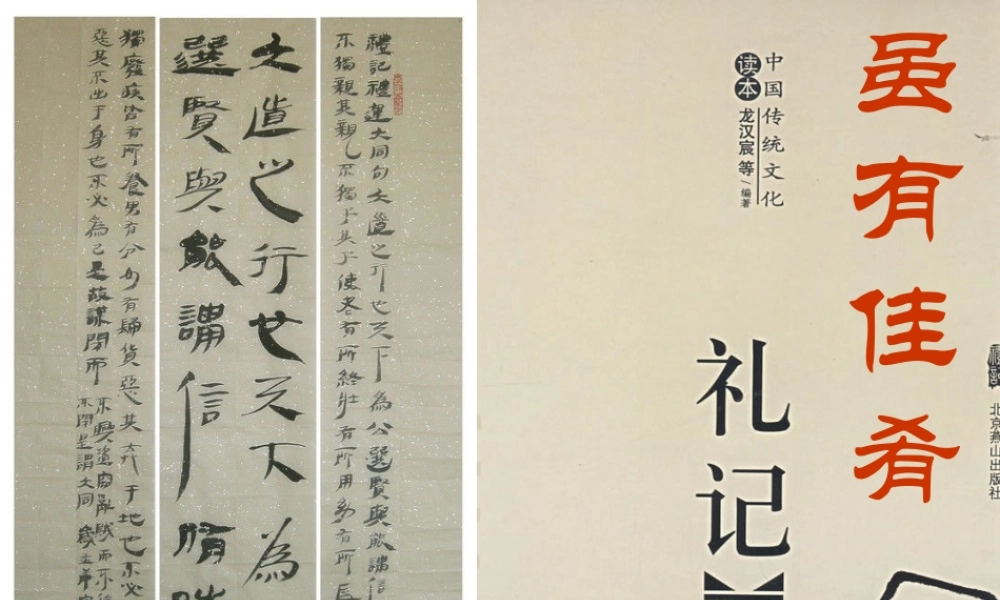 禮記禮運大同句大道之行也天下為公選賢與能講信
不獨親其親不獨子其子使老有所終壯有所用幼有所長
大道之行也天下為
選賢與能講信脩睦
獨廢疾皆有所養男有分女有歸貨惡其弃于地也不必
惡其不出于身也不必為己是故謀閉而
不興盜竊亂賊而不作
不閉是謂大同
虽有佳肴
中国传统文化
读本
龙汉宸 等/编著
礼记
北京燕山出版社